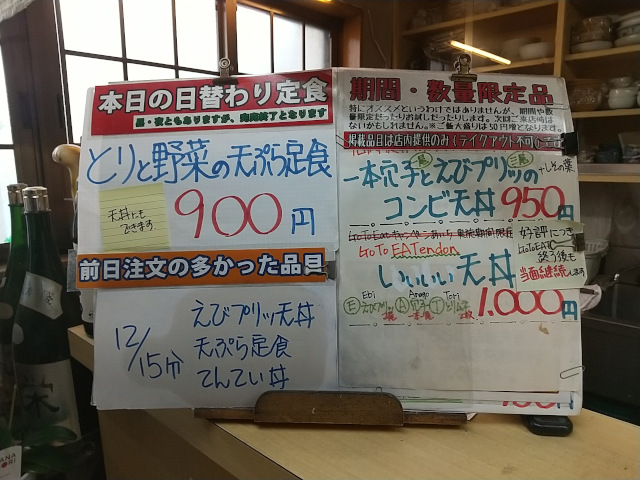 本日の日替わり定食
昼・夜ともありますが、完売終了となります
とりと野菜の天ぷら定食
天丼にも
できます
900円
前日注文の多かった品具
12/15分
えびプリッ天丼
天ぷら定食
てんてい丼
期間・数量限定品
特にオススメというわけではありませんが、期間や数
量限定だったりお試しだったりします。次はご来店時は
ないかもしれません。※ご飯大盛りは50円増となります。
掲載品目は店内提供のみ(テイクアウト不可)
一本穴子とえびプリッの
一尾 三尾
+しその葉
コンビ天丼 950円
GoToEatキャンペーンあいち
GoTo EATendon
好評につき
GoToEAT
終う後も
当面継続します
いいいい天丼
1,000円
Ebi Anago Tori
E えびプリッ A 穴子 T とりムネ